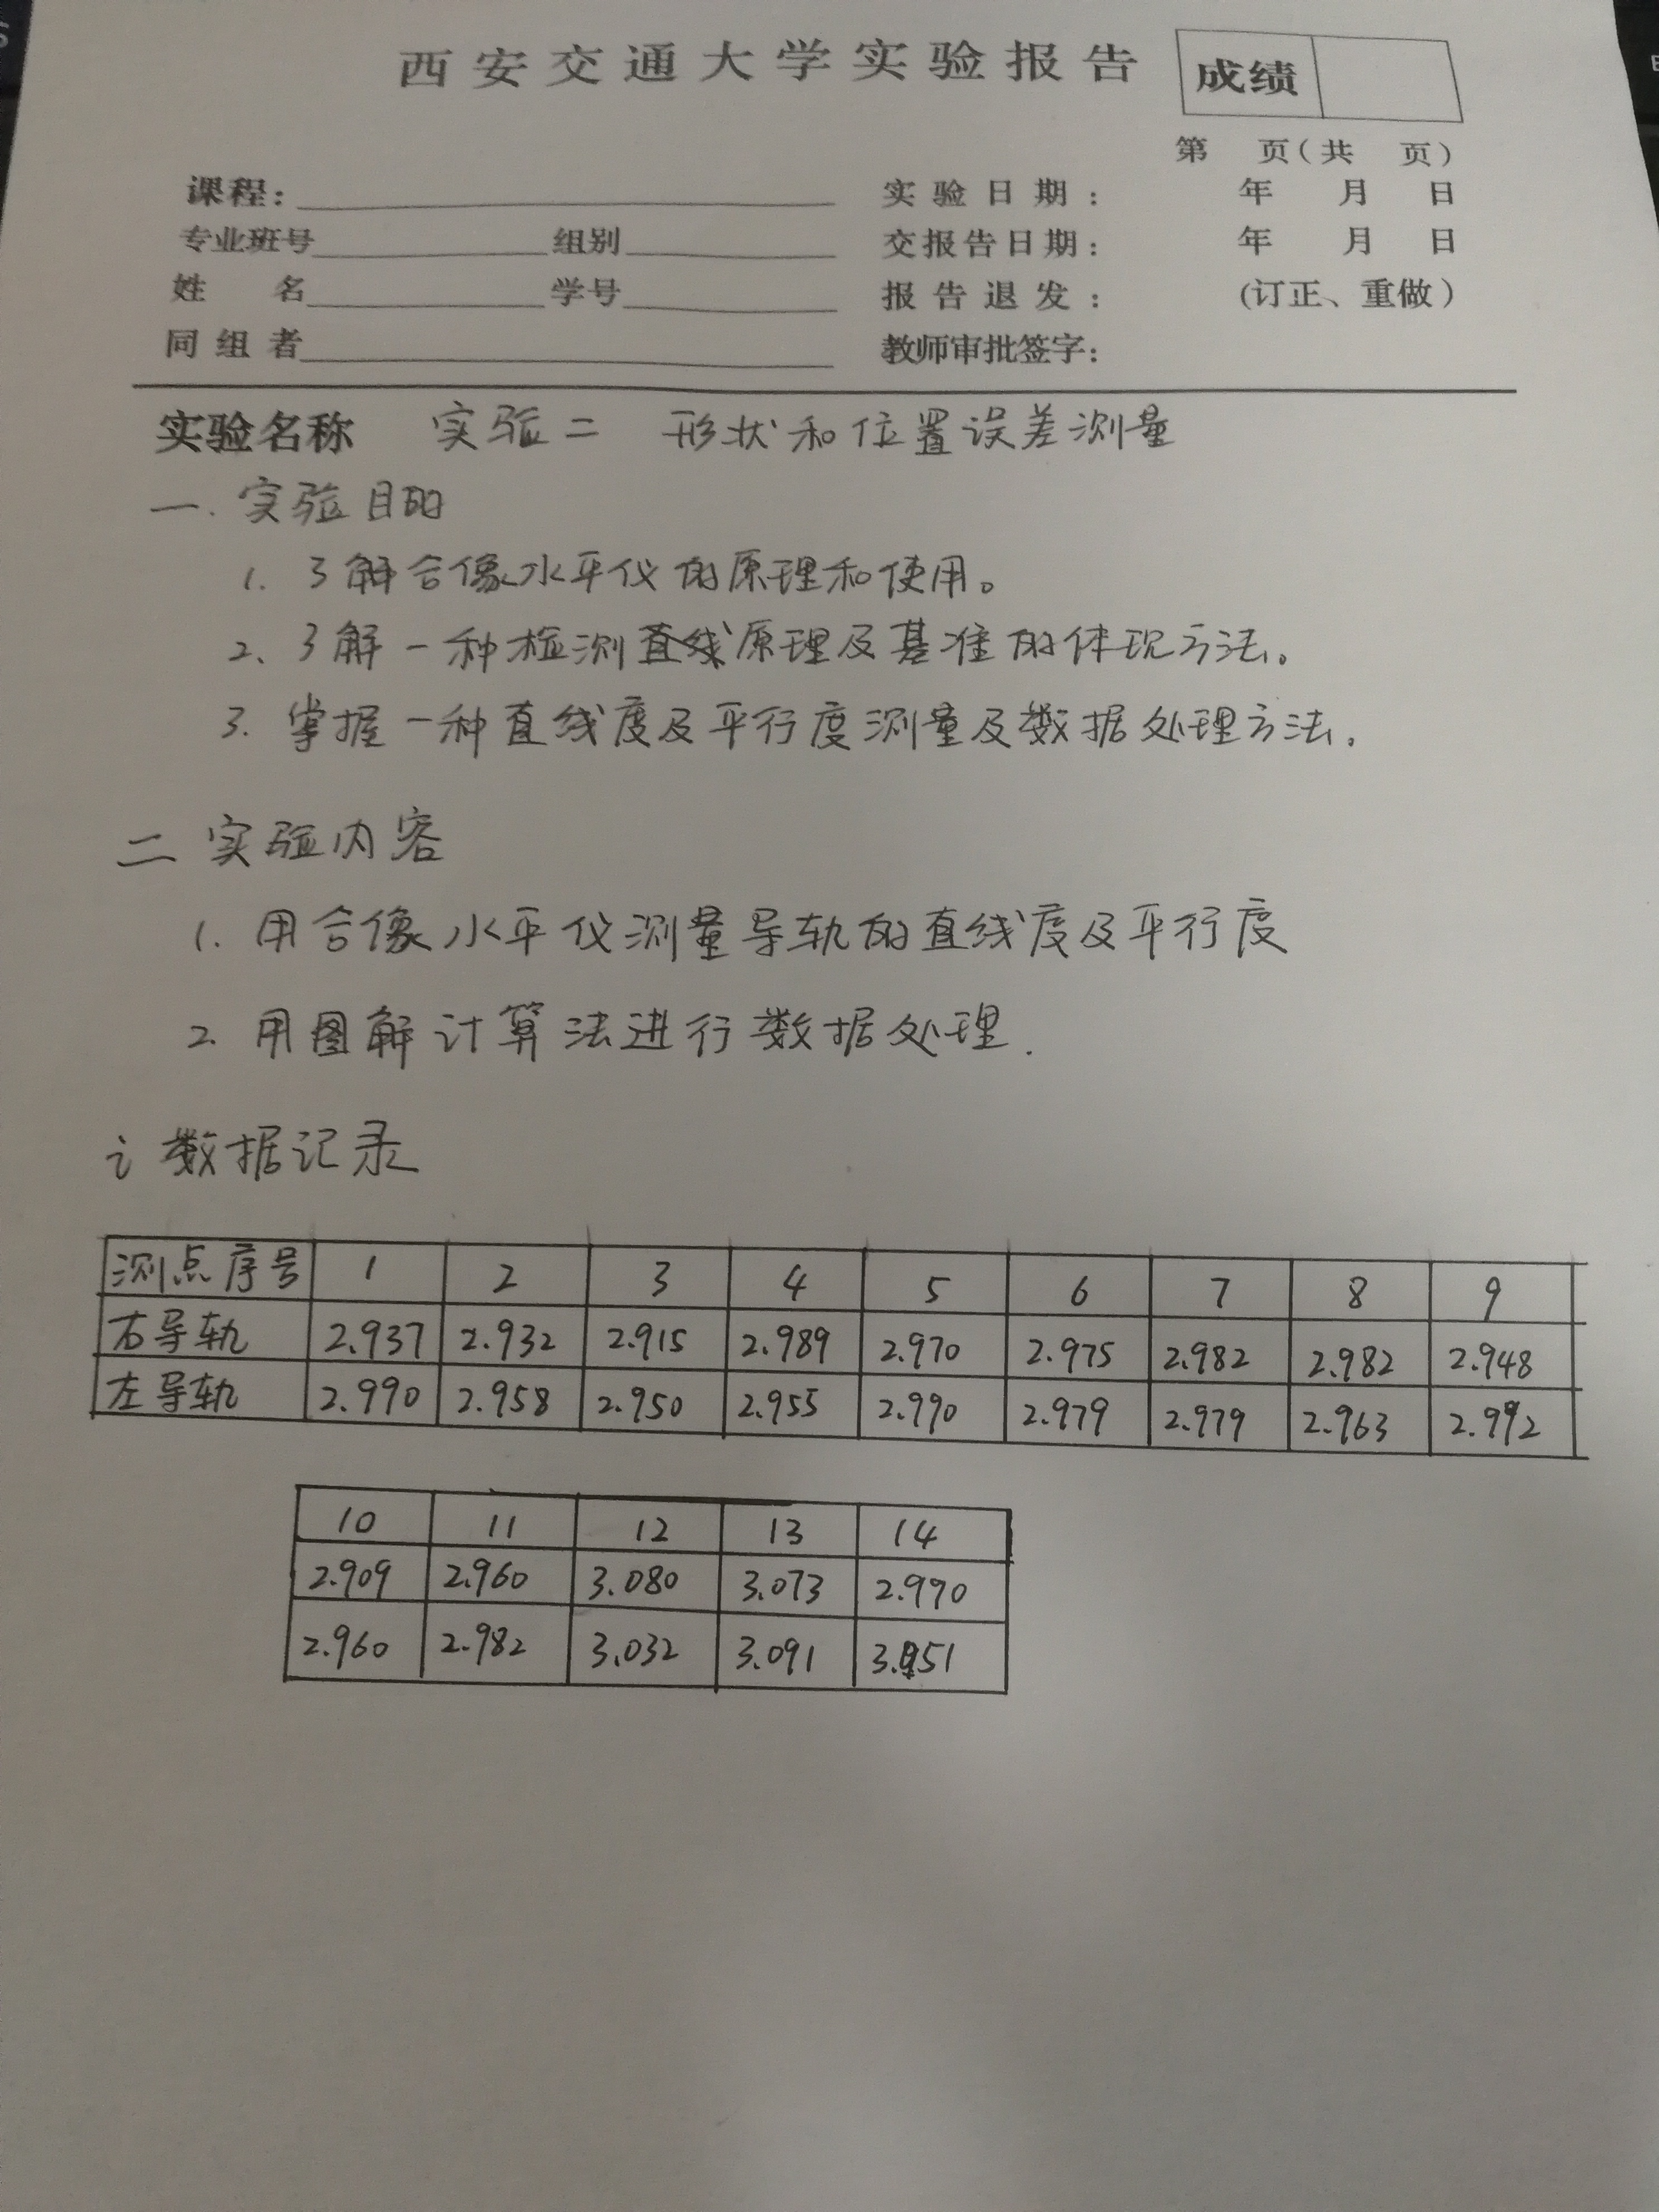 西安交通大学实验报告
成绩
第 页(共 页)
课程: 实验日期: 年 月 日
专业班号 组别 交报告日期: 年 月 日
姓 名 学号 报告退发: (订正、重做)
同组者 教师审批签字:
实验名称 实验二 形状和位置误差测量
一. 实验目的
1. 了解合像水平仪的原理和使用。
2、了解一种检测直线原理及基准的体现方法。
3. 掌握一种直线度及平行度测量及数据处理方法.
二 实验内容
1. 用合像水平仪测量导轨的直线度及平行度
2. 用图解计算法进行数据处理.
i 数据记录
测点序号 1 2 3 4 5 6 7 8 9
右导轨 2.937 2.932 2.915 2.989 2.970 2.975 2.982 2.982 2.948
左导轨 2.990 2.958 2.950 2.955 2.990 2.979 2.979 2.963 2.992
10 11 12 13 14
2.909 2.960 3.080 3.073 2.990
2.960 2.982 3.032 3.091